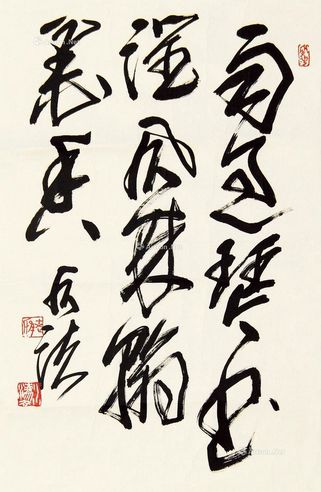 雨過琴書
潤風來翰
墨香